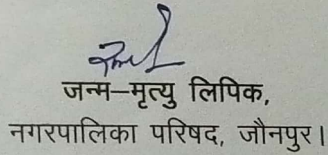 जन्म–मृत्यु लिपिक,
नगरपालिका परिषद, जौनपुर।